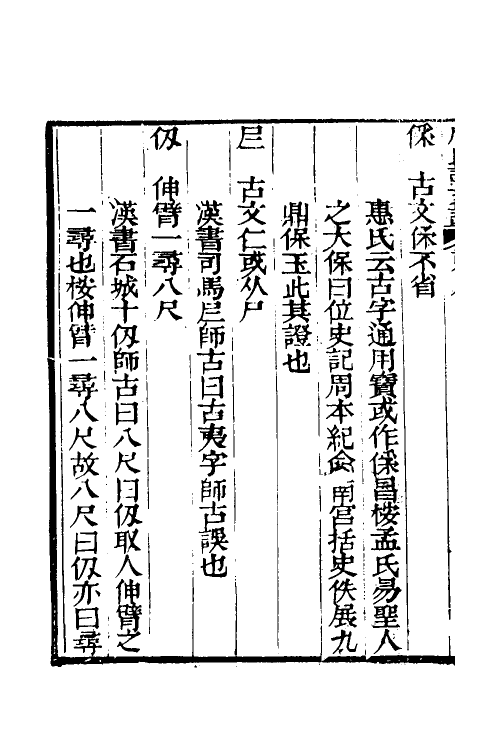 保　古文保不省
惠氏云古字通用寶或作保昌桉孟氏易聖人
之大保曰位史記周本紀命南宮括史佚展九
鼎保玉此其證也
𡰥　古文仁或从尸
漢書司馬𡰥師古曰古夷字師古誤也
仭　伸臂一尋八尺
漢書石城十仭師古曰八尺曰仭取人伸臂之
一尋也桉伸臂一尋八尺故八尺曰仭亦曰尋